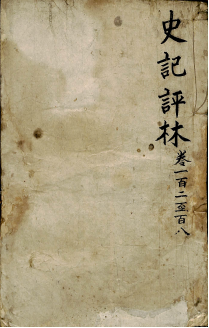 史記評林
卷一百二至百八